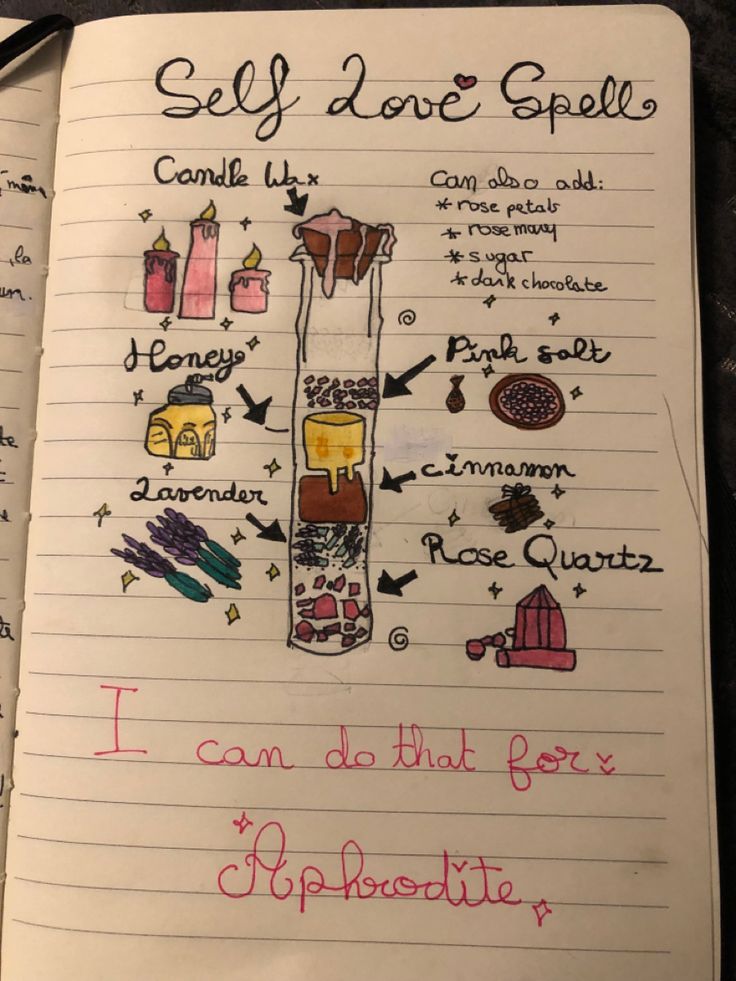 Self Love Spell
Candle Wax
Can also add:
* rose petals
* rosemary
* sugar
* dark chocolate
Honey
Pink salt
Lavender
cinnamon
Rose Quartz
I can do that for:
Aphrodite